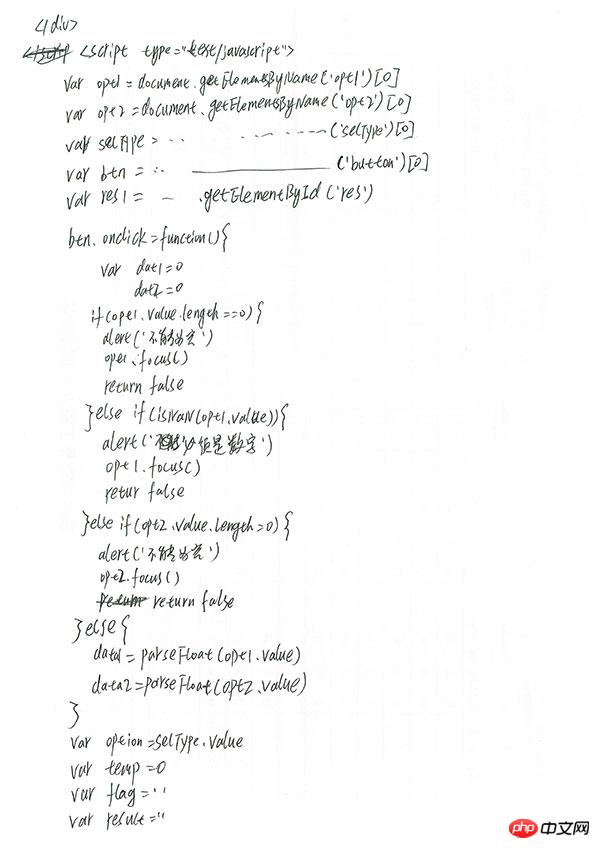 </div>
<script type="text/javascript">
var opt1 = document.getElementsByName('opt1')[0]
var opt2 = document.getElementsByName('opt2')[0]
var selType = .. ........('selType')[0]
var btn = .. ________ ('button')[0]
var res1 = — .getElementById('res')
btn.onclick=function(){
var dat1=0
dat2=0
if(opt1.value.length==0){
alert('不能为空')
opt1.focus()
return false
}else if(isNaN(opt1.value)){
alert('必须是数字')
opt1.focus()
retur false
}else if(opt2.value.length=0){
alert('不能为空')
opt2.focus()
return false
}else{
data1=parseFloat(opt1.value)
data2=parseFloat(opt2.value)
}
var option=selType.value
var temp=0
var flag=''
var result=''
php 中文网